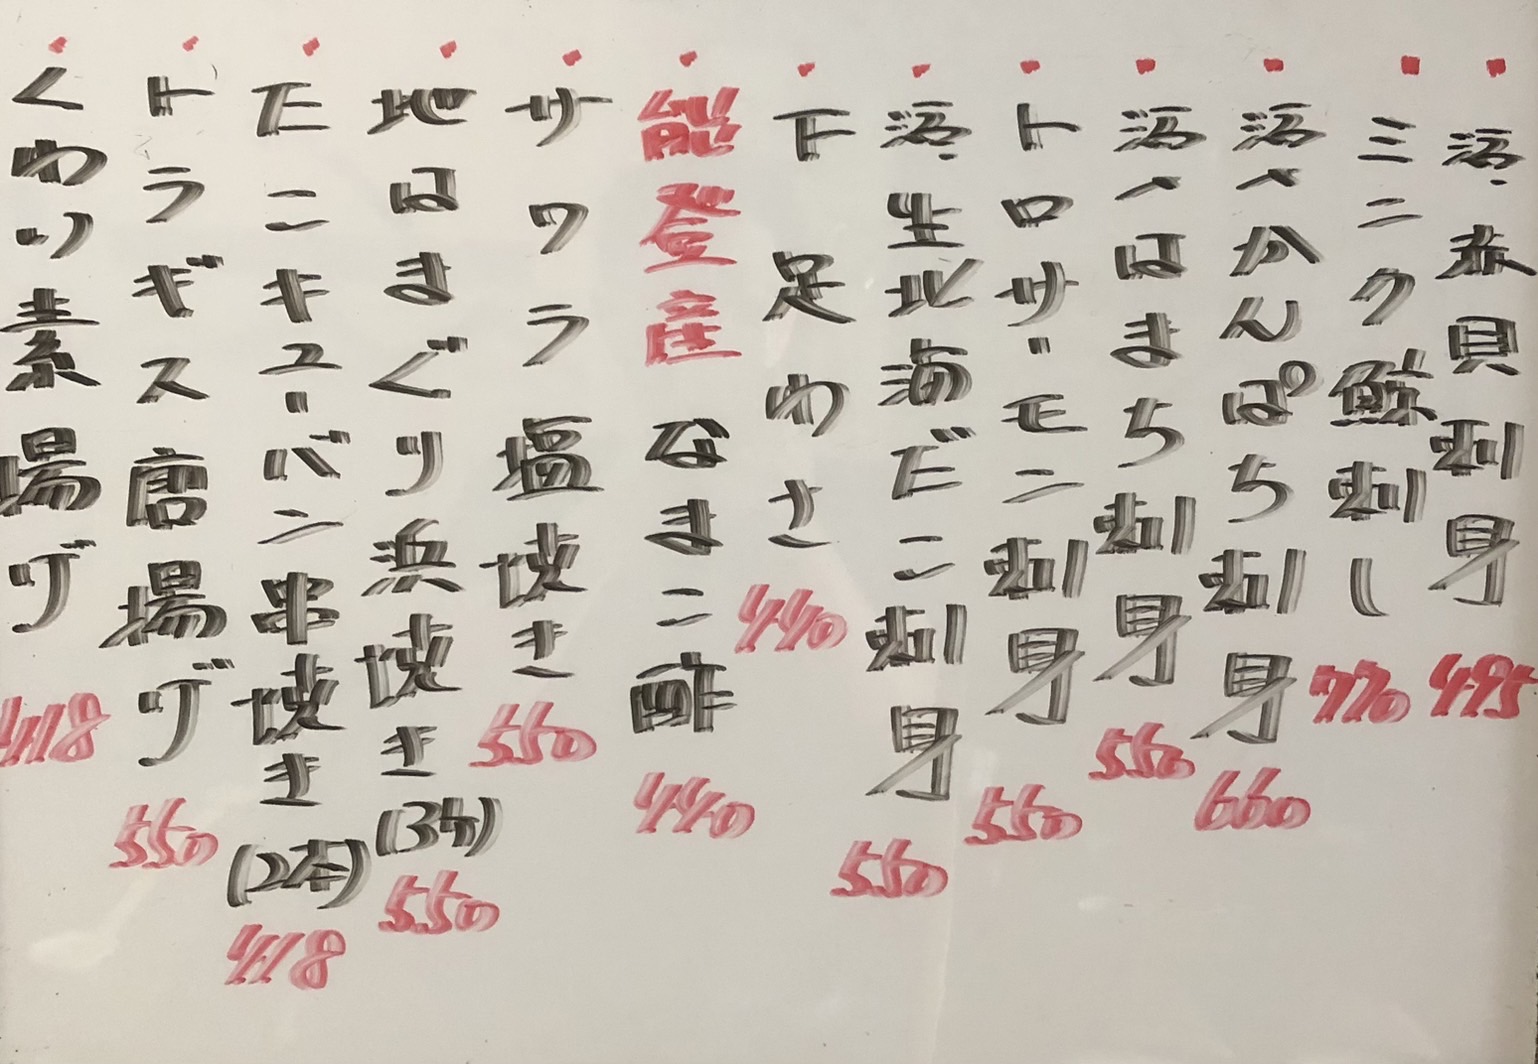 活赤貝刺身 495
ミンク鯨刺し 770
活〆かんぱち刺身 660
活〆はまち刺身 550
トロサーモン刺身 550
活生北海だこ刺身 550
下足わさ 440
能登産なまこ酢 440
サワラ塩焼き 550
地はまぐり浜焼き(3ケ) 550
たこキューバン串焼き(2本) 418
トラギス唐揚げ 550
くわい素揚げ 418